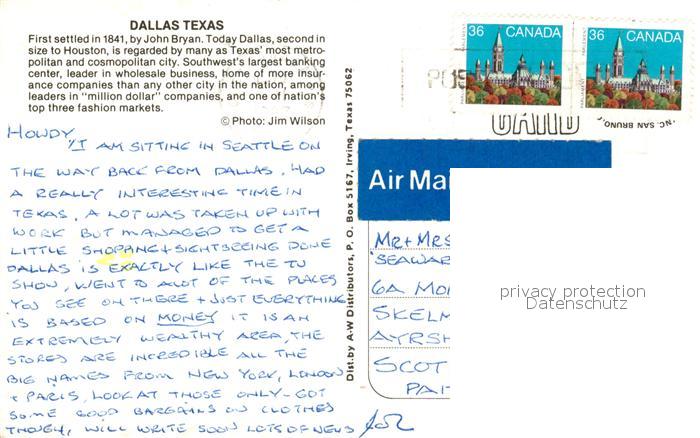 DALLAS TEXAS
First settled in 1841, by John Bryan. Today Dallas, second in
size to Houston, is regarded by many as Texas' most metro-
politan and cosmopolitan city. Southwest's largest banking
center, leader in wholesale business, home of more insur-
ance companies than any other city in the nation, among
leaders in "million dollar" companies, and one of nation's
top three fashion markets.
© Photo: Jim Wilson
HOWDY,
I AM SITTING IN SEATTLE ON
THE WAY BACK FROM DALLAS, HAD
A REALLY INTERESTING TIME IN
TEXAS, A LOT WAS TAKEN UP WITH
WORK BUT MANAGED TO GET A
LITTLE SHOPPING + SIGHTSEEING DONE
DALLAS IS EXACTLY LIKE THE TV
SHOW, WENT TO ALOT OF THE PLACES
YOU SEE ON THERE + JUST EVERYTHING
IS BASED ON MONEY IT IS AN
EXTREMELY WEALTHY AREA, THE
STORES ARE INCREDIBLE ALL THE
BIG NAMES FROM NEW YORK, LONDON
+ PARIS, LOOK AT THOSE ONLY - GOT
SOME GOOD BARGAINS ON CLOTHES
THOUGH, WILL WRITE SOON LOTS OF NEWS
Dist. by A-W Distributors, P. O. Box 5167, Irving, Texas 75062
36 CANADA
36 CANADA
PARLIAMENT
PARLIAMENT
INC. SAN BRUNO,
Air Mai
MR + MRS
'SEAWAR
6A MO
SKELM
AYRSH
SCOT
PAI
privacy protection
Datenschutz